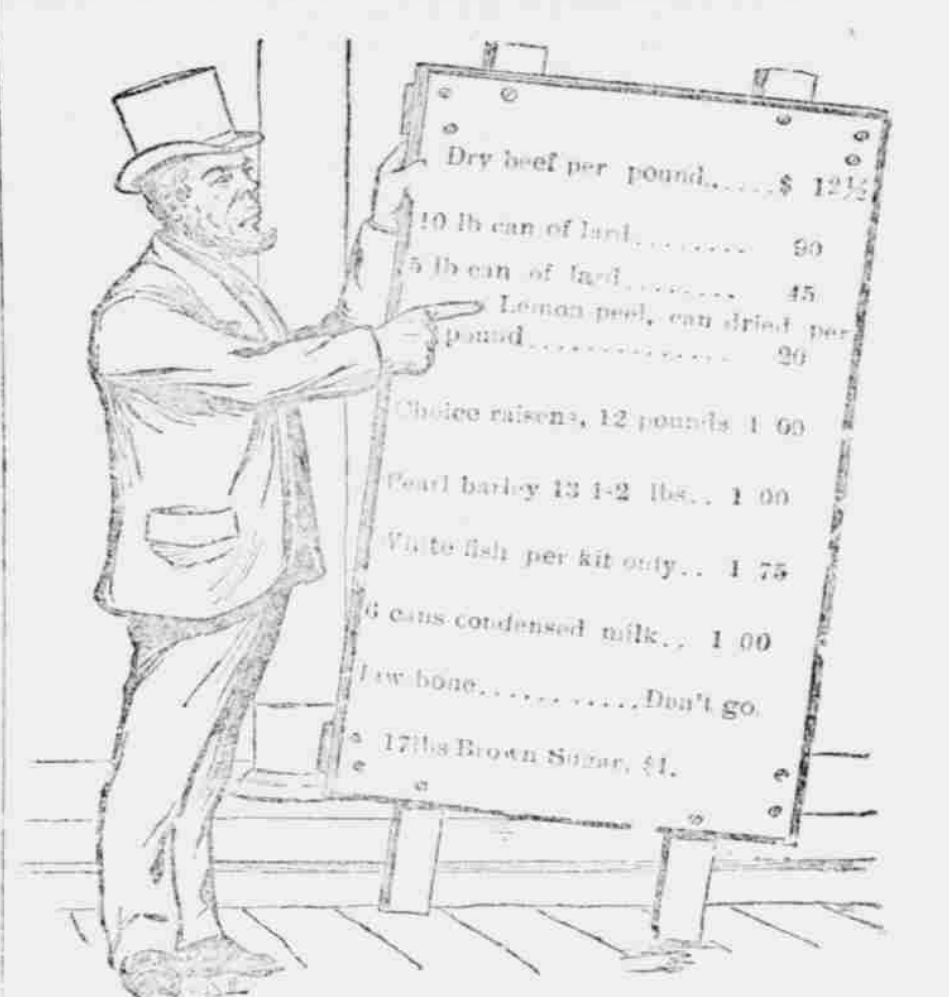 Dry beef per pound......$ 12½
10 lb can of lard......... 90
5 lb can of lard........ 45
Lemon peel, can dried per
pound............... 20
Choice raisens, 12 pounds 1 00
Pearl barley 13 1-2 lbs.. 1 00
White fish per kit only.. 1 75
6 cans condensed milk.. 1 00
Jaw bone............Don't go.
17lbs Brown Sugar, $1.